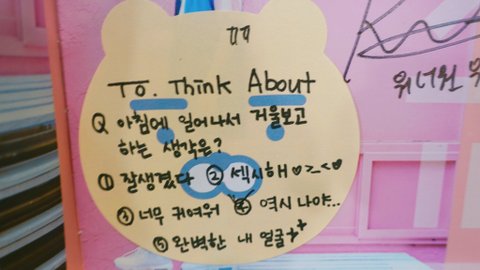 To. Think About
Q 아침에 일어나서 거울보고
하는 생각은?
① 잘생겼다 ② 섹시해♡><♡
③ 너무 귀여워 ④ 역시 나야..
⑤ 완벽한 내 얼굴
워너원